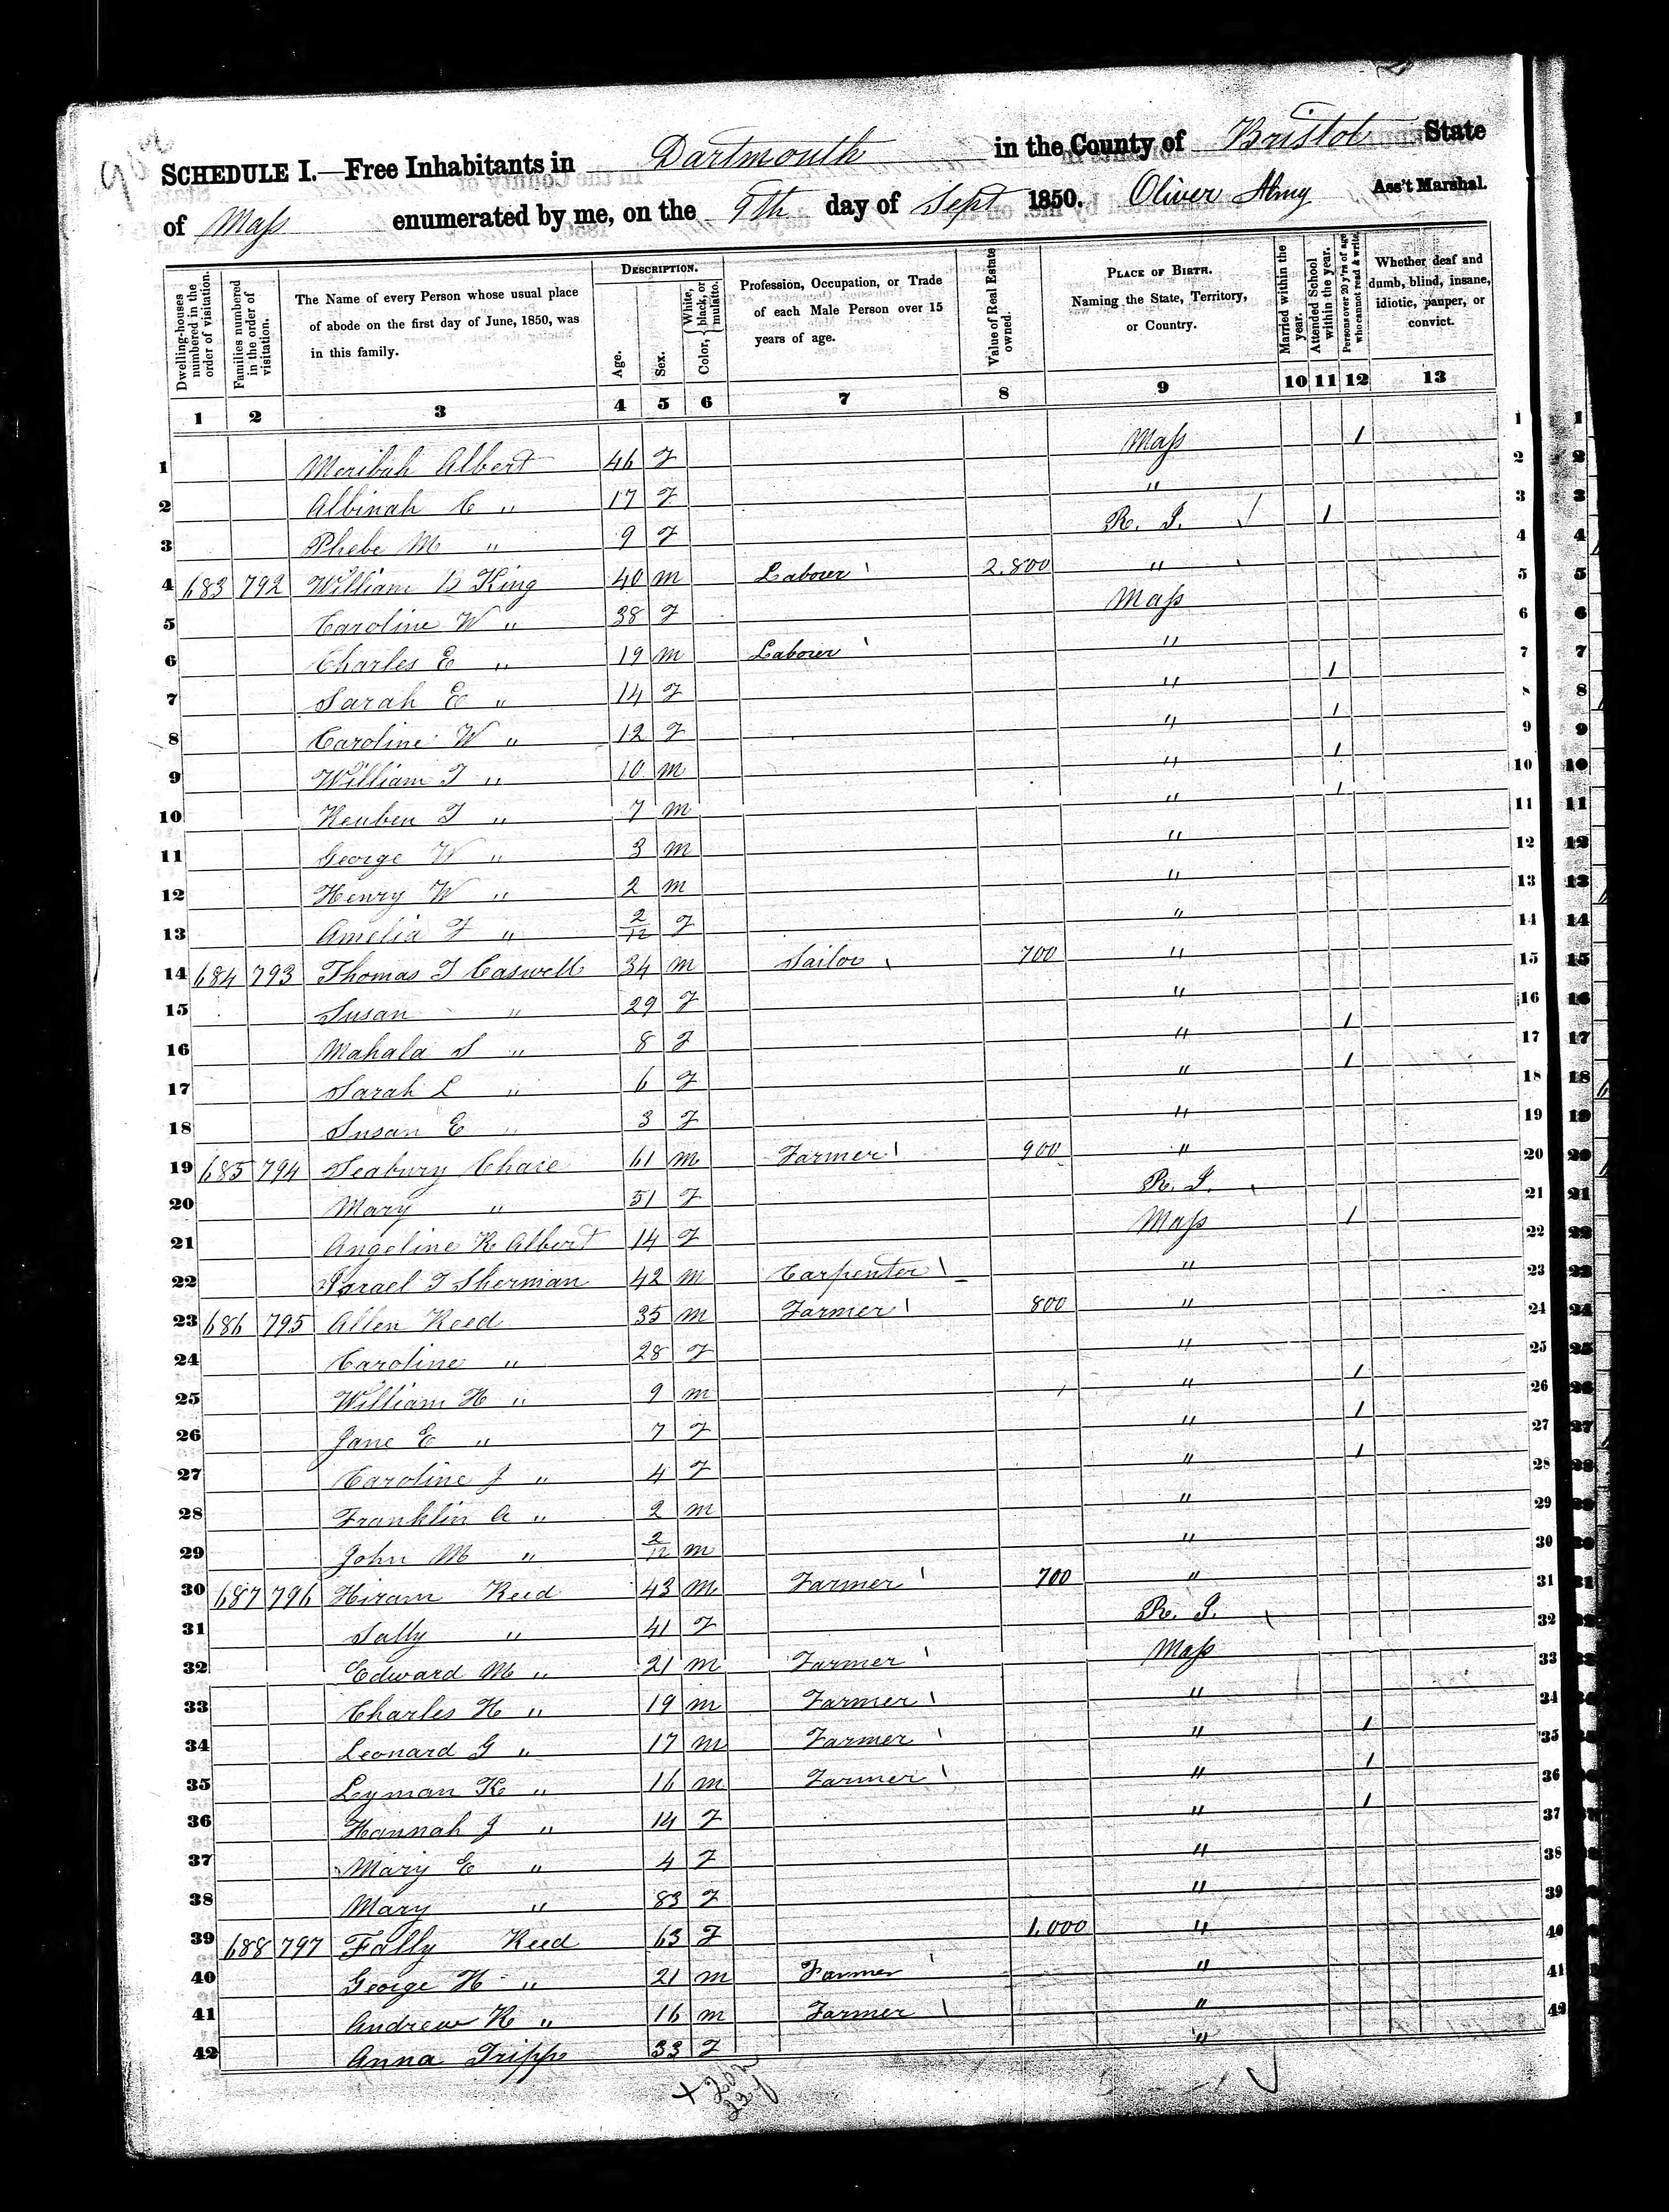 SCHEDULE I.—Free Inhabitants in Dartmouth in the County of Bristol State
of Mass enumerated by me, on the 9th day of Sept 1850. Oliver Almy Ass't Marshal.
Dwelling-houses numbered in the order of visitation.
Families numbered in the order of visitation.
The Name of every Person whose usual place of abode on the first day of June, 1850, was in this family.
DESCRIPTION.
Age.
Sex.
Color, White, black, or mulatto.
Profession, Occupation, or Trade of each Male Person over 15 years of age.
Value of Real Estate owned.
PLACE OF BIRTH. Naming the State, Territory, or Country.
Married within the year.
Attended School within the year.
Persons over 20 y'rs of age who cannot read & write.
Whether deaf and dumb, blind, insane, idiotic, pauper, or convict.
1 2 3 4 5 6 7 8 9 10 11 12 13
1 Meribah Albert 46 F Mass 1 1
2 Albinah C " 17 F " 2
3 Phebe M " 9 F R. I. 1 3
4 683 792 William B King 40 M Laborer 2.800 " 4
5 Caroline W " 38 F Mass 5
6 Charles E " 19 M Laborer " 6
7 Sarah E " 14 F " 1 7
8 Caroline W " 12 F " 1 8
9 William T " 10 M " 1 9
10 Reuben T " 7 M " 1 10
11 George W " 3 M " 11
12 Henry W " 2 M " 12
13 Amelia F " 2/12 F " 13
14 684 793 Thomas T Caswell 34 M Sailor 700 " 14
15 Susan " 29 F " 15
16 Mahala S " 8 F " 1 16
17 Sarah L " 6 F " 1 17
18 Susan E " 3 F " 18
19 685 794 Seabury Chace 61 M Farmer 900 " 19
20 Mary " 51 F R. I. 20
21 Angeline K Albert 14 F Mass 1 21
22 Israel T Sherman 42 M Carpenter " 22
23 686 795 Allen Reed 35 M Farmer 800 " 23
24 Caroline " 28 F " 24
25 William H " 9 M " 1 25
26 Jane E " 7 F " 1 26
27 Caroline J " 4 F " 1 27
28 Franklin A " 2 M " 28
29 John M " 2/12 M " 29
30 687 796 Hiram Reed 43 M Farmer 700 " 30
31 Sally " 41 F R. I. 31
32 Edward M " 21 M Farmer Mass 32
33 Charles H " 19 M Farmer " 33
34 Leonard G " 17 M Farmer " 1 34
35 Lyman K " 16 M Farmer " 1 35
36 Hannah J " 14 F " 1 36
37 Mary E " 4 F " 37
38 Mary " 83 F " 38
39 688 797 Fally Reed 63 F 1.000 " 39
40 George H " 21 M Farmer " 40
41 Andrew K " 16 M Farmer " 41
42 Anna Tripp 33 F " 42